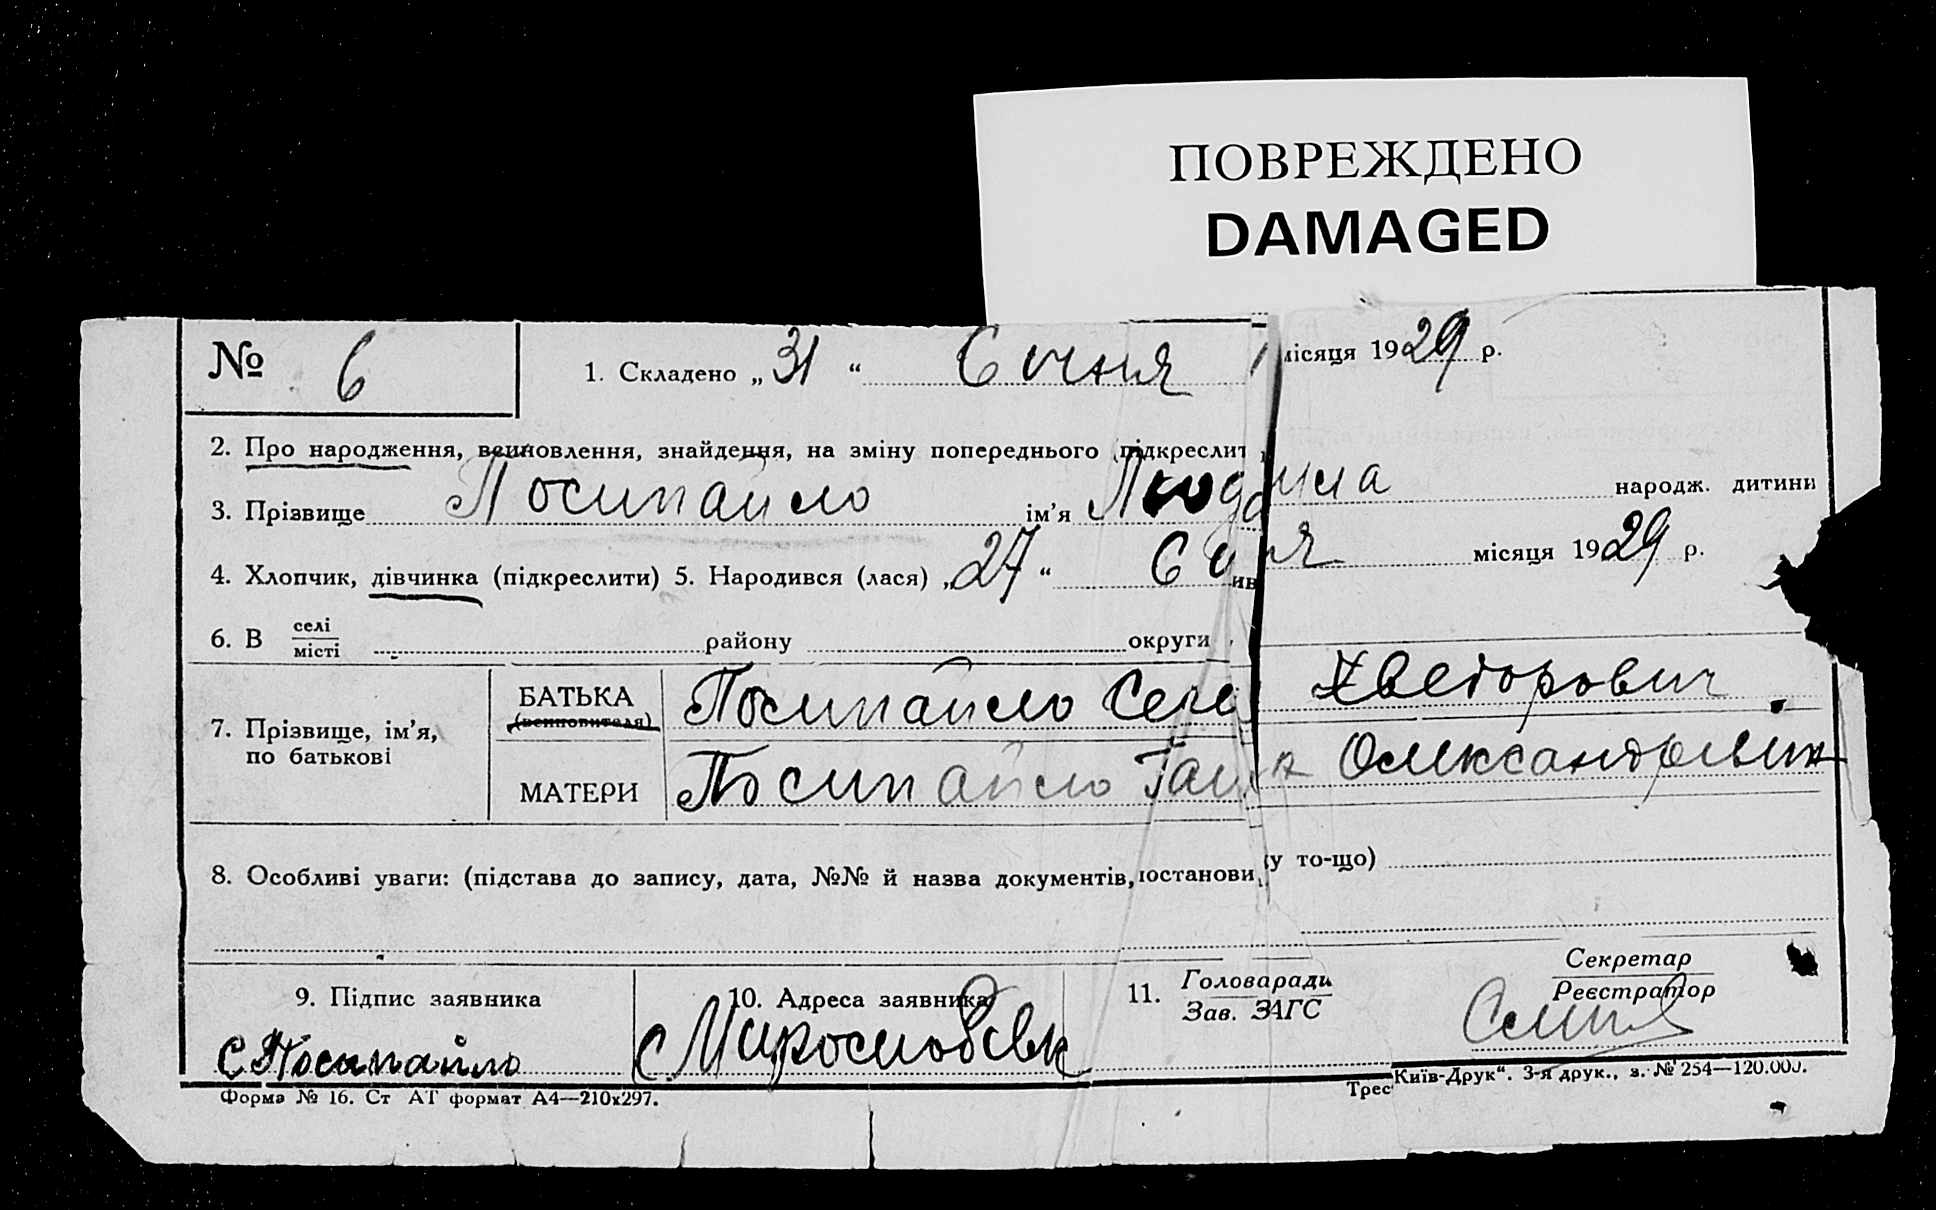 ПОВРЕЖДЕНО
DAMAGED
№ 6
1. Складено „31“ Січня місяця 1929 р.
2. Про народження, всиновлення, знайдення, на зміну попереднього (підкреслит
3. Прізвище Посипайло ім'я Людмила народж. дитини
4. Хлопчик, дівчинка (підкреслити) 5. Народився (лася) „27“ місяця 1929 р.
6. В селі місті району округи
7. Прізвище, ім'я, по батькові
БАТЬКА (всиновителя) Посипайло Хведорович
МАТЕРИ Посипайло
8. Особливі уваги: (підстава до запису, дата, №№ й назва документів, постанови у то-що)
9. Підпис заявника
10. Адреса заявника
11. Голова ради Зав. ЗАГС
Секретар Реєстратор
С Посипайло
с.
Форма № 16. Ст АТ формат А4—210х297.
Трес Київ-Друк“. 3-я друк., з. № 254—120.000.